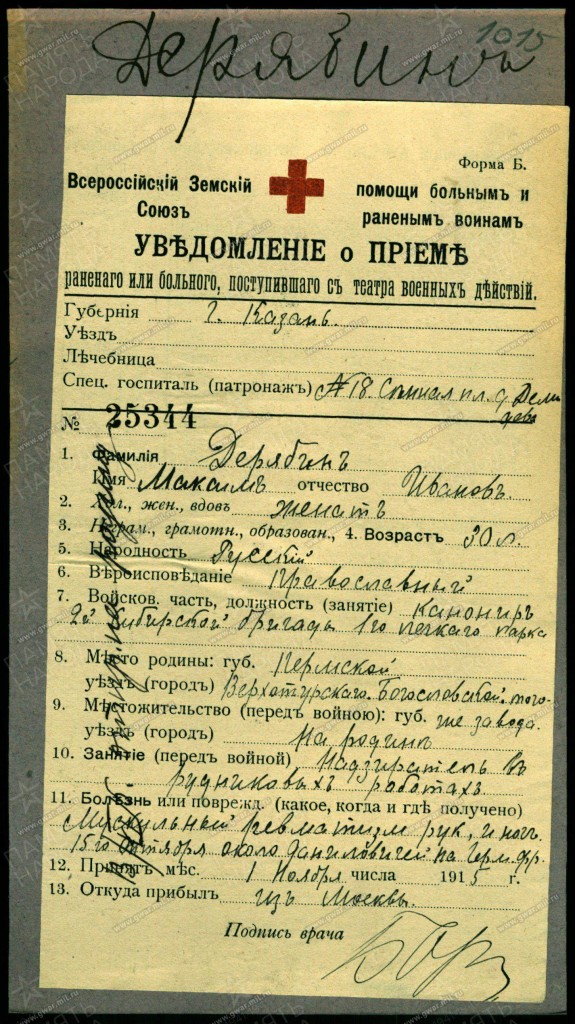 1015
Дерябинъ
Форма Б.
Всероссійскій Земскій Союзъ
помощи больнымъ и раненымъ воинамъ
УВѢДОМЛЕНІЕ о ПРІЕМѢ
раненаго или больного, поступившаго съ театра военныхъ дѣйствій.
Губернія г. Казань.
Уѣздъ
Лѣчебница
Спец. госпиталь (патронажъ) №18.
№ 25344
1. Фамилія Дерябинъ
Имя Максимъ отчество Ивановъ.
2. Хол., жен., вдовъ женатъ
3. Неграм., грамотн., образован., 4. Возрастъ 30 л.
5. Народность Русскій
6. Вѣроисповѣданіе православный
7. Войсков. часть, должность (занятіе) канониръ
2й Сибирской бригады 1го легкаго парка
8. Мѣсто родины: губ. Пермской
уѣздъ (городъ) Верхотурскаго. Богословской. того-
9. Мѣстожительство (передъ войною): губ. же завода.
уѣздъ (городъ) на родинѣ
10. Занятіе (передъ войной) надзиратель въ
рудниковыхъ работахъ
11. Болѣзнь или поврежд. (какое, когда и гдѣ получено)
Мускульный ревматизм рук, и ног.
15го октября около Даниловичей на Герм. фр.
12. Принятъ мѣс. 1 Ноября числа 1915 г.
13. Откуда прибылъ изъ Москвы.
Подпись врача
на родину